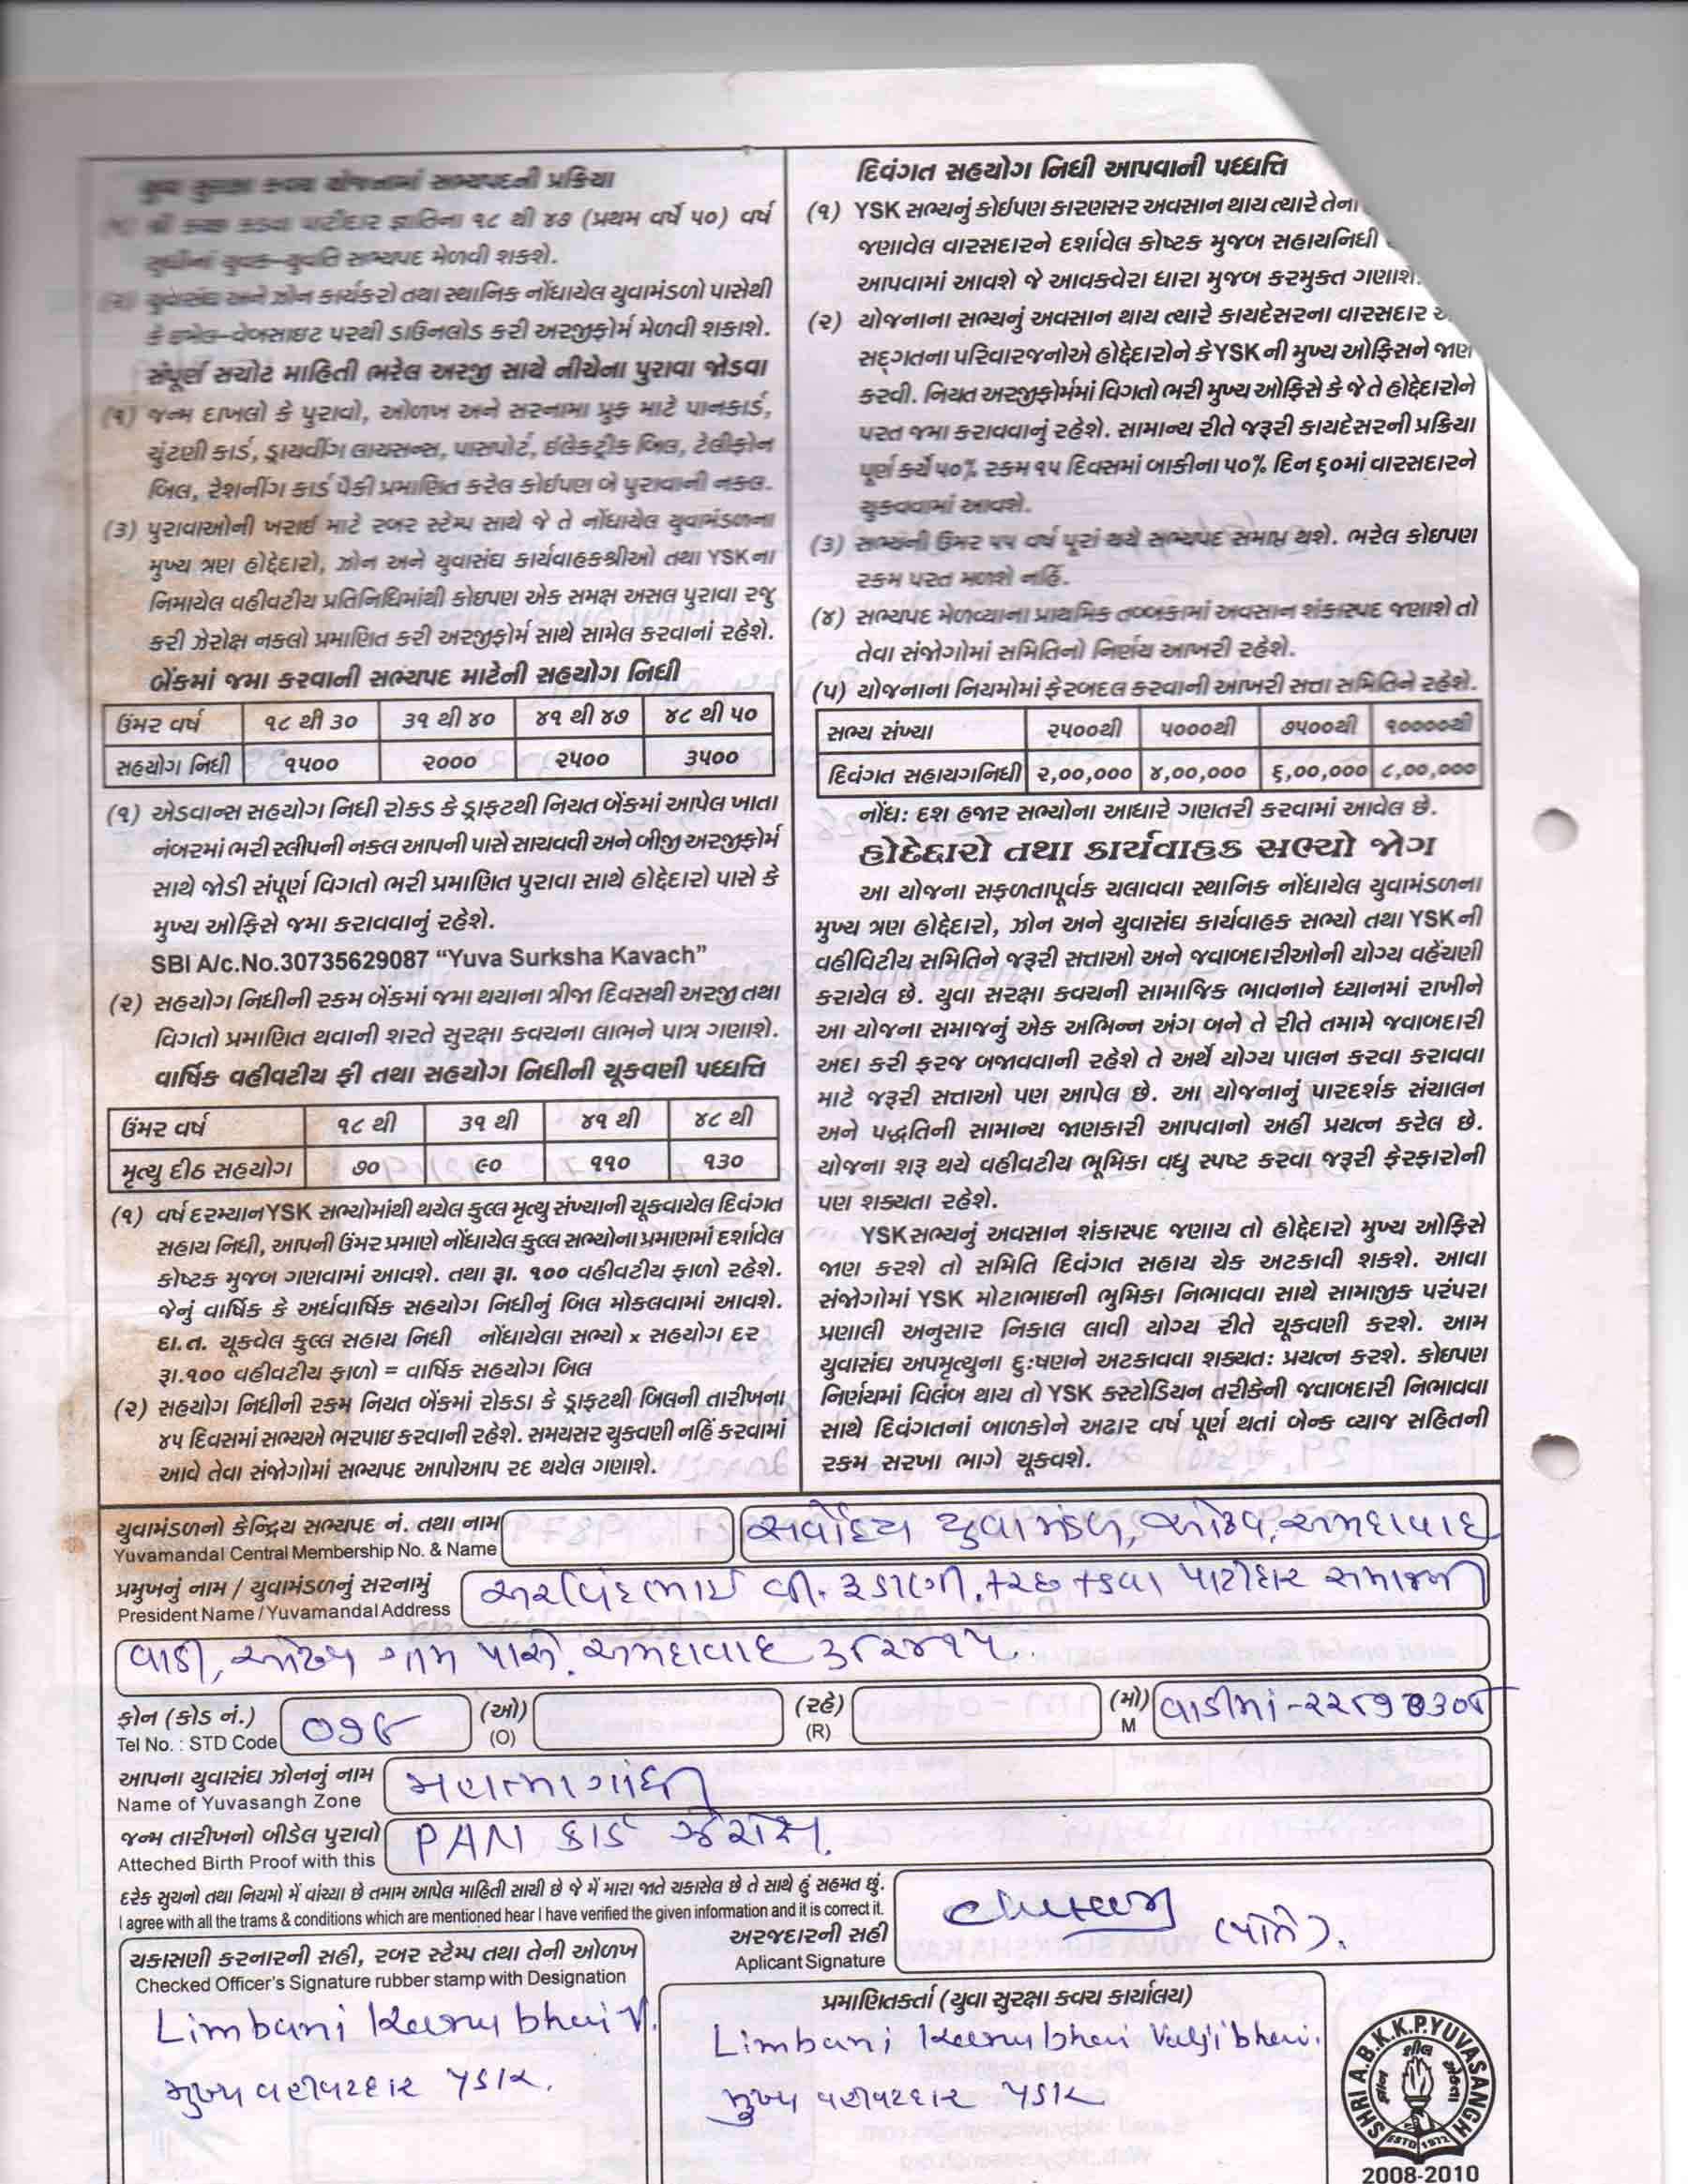 યુવા સુરક્ષા કવચ યોજનામાં સભ્યપદની પ્રક્રિયા
(૧) શ્રી કચ્છ કડવા પાટીદાર જ્ઞાતિના ૧૮ થી ૪૭ (પ્રથમ વર્ષે ૫૦) વર્ષ
સુધીનાં યુવક–યુવતિ સભ્યપદ મેળવી શકશે.
(૨) યુવાસંઘ અને ઝોન કાર્યકરો તથા સ્થાનિક નોંધાયેલ યુવામંડળો પાસેથી
કે ઇમેલ–વેબસાઇટ પરથી ડાઉનલોડ કરી અરજીફોર્મ મેળવી શકાશે.
સંપૂર્ણ સચોટ માહિતી ભરેલ અરજી સાથે નીચેના પુરાવા જોડવા
(૧) જન્મ દાખલો કે પુરાવો, ઓળખ અને સરનામા પ્રુફ માટે પાનકાર્ડ,
ચુંટણી કાર્ડ, ડ્રાયવીંગ લાયસન્સ, પાસપોર્ટ, ઇલેકટ્રીક બિલ, ટેલીફોન
બિલ, રેશનીંગ કાર્ડ પૈકી પ્રમાણિત કરેલ કોઇપણ બે પુરાવાની નકલ.
(૩) પુરાવાઓની ખરાઇ માટે રબર સ્ટેમ્પ સાથે જે તે નોંધાયેલ યુવામંડળના
મુખ્ય ત્રણ હોદ્દેદારો, ઝોન અને યુવાસંઘ કાર્યવાહકશ્રીઓ તથા YSKના
નિમાયેલ વહીવટીય પ્રતિનિધિમાંથી કોઇપણ એક સમક્ષ અસલ પુરાવા રજુ
કરી ઝેરોક્ષ નકલો પ્રમાણિત કરી અરજીફોર્મ સાથે સામેલ કરવાનાં રહેશે.
બેંકમાં જમા કરવાની સભ્યપદ માટેની સહયોગ નિધી
ઉંમર વર્ષ ૧૮ થી ૩૦ ૩૧ થી ૪૦ ૪૧ થી ૪૭ ૪૮ થી ૫૦
સહયોગ નિધી ૧૫૦૦ ૨૦૦૦ ૨૫૦૦ ૩૫૦૦
(૧) એડવાન્સ સહયોગ નિધી રોકડ કે ડ્રાફટથી નિયત બેંકમાં આપેલ ખાતા
નંબરમાં ભરી સ્લીપની નકલ આપની પાસે સાચવવી અને બીજી અરજીફોર્મ
સાથે જોડી સંપૂર્ણ વિગતો ભરી પ્રમાણિત પુરાવા સાથે હોદ્દેદારો પાસે કે
મુખ્ય ઓફિસે જમા કરાવવાનું રહેશે.
SBI A/c.No.30735629087 “Yuva Surksha Kavach”
(૨) સહયોગ નિધીની રકમ બેંકમાં જમા થયાના ત્રીજા દિવસથી અરજી તથા
વિગતો પ્રમાણિત થવાની શરતે સુરક્ષા કવચના લાભને પાત્ર ગણાશે.
વાર્ષિક વહીવટીય ફી તથા સહયોગ નિધીની ચૂકવણી પધ્ધતિ
ઉંમર વર્ષ ૧૮ થી ૩૧ થી ૪૧ થી ૪૮ થી
મૃત્યુ દીઠ સહયોગ ૭૦ ૯૦ ૧૧૦ ૧૩૦
(૧) વર્ષ દરમ્યાન YSK સભ્યોમાંથી થયેલ કુલ્લ મૃત્યુ સંખ્યાની ચૂકવાયેલ દિવંગત
સહાય નિધી, આપની ઉંમર પ્રમાણે નોંધાયેલ કુલ્લ સભ્યોના પ્રમાણમાં દર્શાવેલ
કોષ્ટક મુજબ ગણવામાં આવશે. તથા રૂા. ૧૦૦ વહીવટીય ફાળો રહેશે.
જેનું વાર્ષિક કે અર્ધવાર્ષિક સહયોગ નિધીનું બિલ મોકલવામાં આવશે.
દા.ત. ચૂકવેલ કુલ્લ સહાય નિધી નોંધાયેલા સભ્યો x સહયોગ દર
રૂા.૧૦૦ વહીવટીય ફાળો = વાર્ષિક સહયોગ બિલ
(૨) સહયોગ નિધીની રકમ નિયત બેંકમાં રોકડા કે ડ્રાફટથી બિલની તારીખના
૪૫ દિવસમાં સભ્યએ ભરપાઇ કરવાની રહેશે. સમયસર ચુકવણી નહિં કરવામાં
આવે તેવા સંજોગોમાં સભ્યપદ આપોઆપ રદ થયેલ ગણાશે.
દિવંગત સહયોગ નિધી આપવાની પધ્ધત્તિ
(૧) YSK સભ્યનું કોઇપણ કારણસર અવસાન થાય ત્યારે તેના
જણાવેલ વારસદારને દર્શાવેલ કોષ્ટક મુજબ સહાયનિધી
આપવામાં આવશે જે આવકવેરા ધારા મુજબ કરમુક્ત ગણાશે.
(૨) યોજનાના સભ્યનું અવસાન થાય ત્યારે કાયદેસરના વારસદાર
સદ્ગતના પરિવારજનોએ હોદ્દેદારોને કે YSK ની મુખ્ય ઓફિસને જાણ
કરવી. નિયત અરજીફોર્મમાં વિગતો ભરી મુખ્ય ઓફિસે કે જે તે હોદ્દેદારોને
પરત જમા કરાવવાનું રહેશે. સામાન્ય રીતે જરૂરી કાયદેસરની પ્રક્રિયા
પૂર્ણ કર્યે ૫૦% રકમ ૧૫ દિવસમાં બાકીના ૫૦% દિન ૬૦માં વારસદારને
ચુકવવામાં આવશે.
(૩) સભ્યની ઉંમર ૫૫ વર્ષ પૂરાં થયે સભ્યપદ સમાપ્ત થશે. ભરેલ કોઇપણ
રકમ પરત મળશે નહિં.
(૪) સભ્યપદ મેળવ્યાના પ્રાથમિક તબ્બકામાં અવસાન શંકાસ્પદ જણાશે તો
તેવા સંજોગોમાં સમિતિનો નિર્ણય આખરી રહેશે.
(૫) યોજનાના નિયમોમાં ફેરબદલ કરવાની આખરી સત્તા સમિતિને રહેશે.
સભ્ય સંખ્યા ૨૫૦૦થી ૫૦૦૦થી ૭૫૦૦થી ૧૦૦૦૦થી
દિવંગત સહાયગનિધી ૨,૦૦,૦૦૦ ૪,૦૦,૦૦૦ ૬,૦૦,૦૦૦ ૮,૦૦,૦૦૦
નોંધ: દશ હજાર સભ્યોના આધારે ગણતરી કરવામાં આવેલ છે.
હોદ્દેદારો તથા કાર્યવાહક સભ્યો જોગ
આ યોજના સફળતાપૂર્વક ચલાવવા સ્થાનિક નોંધાયેલ યુવામંડળના
મુખ્ય ત્રણ હોદ્દેદારો, ઝોન અને યુવાસંઘ કાર્યવાહક સભ્યો તથા YSK ની
વહીવિટીય સમિતિને જરૂરી સત્તાઓ અને જવાબદારીઓની યોગ્ય વહેંચણી
કરાયેલ છે. યુવા સરક્ષા કવચની સામાજિક ભાવનાને ધ્યાનમાં રાખીને
આ યોજના સમાજનું એક અભિન્ન અંગ બને તે રીતે તમામે જવાબદારી
અદા કરી ફરજ બજાવવાની રહેશે તે અર્થે યોગ્ય પાલન કરવા કરાવવા
માટે જરૂરી સત્તાઓ પણ આપેલ છે. આ યોજનાનું પારદર્શક સંચાલન
અને પદ્ધતિની સામાન્ય જાણકારી આપવાનો અહીં પ્રયત્ન કરેલ છે.
યોજના શરૂ થયે વહીવટીય ભૂમિકા વધુ સ્પષ્ટ કરવા જરૂરી ફેરફારોની
પણ શક્યતા રહેશે.
YSK સભ્યનું અવસાન શંકાસ્પદ જણાય તો હોદ્દેદારો મુખ્ય ઓફિસે
જાણ કરશે તો સમિતિ દિવંગત સહાય ચેક અટકાવી શકશે. આવા
સંજોગોમાં YSK મોટાભાઇની ભુમિકા નિભાવવા સાથે સામાજીક પરંપરા
પ્રણાલી અનુસાર નિકાલ લાવી યોગ્ય રીતે ચૂકવણી કરશે. આમ
યુવાસંઘ અપમૃત્યુના દુ:ષણને અટકાવવા શક્યત: પ્રયત્ન કરશે. કોઇપણ
નિર્ણયમાં વિલંબ થાય તો YSK કસ્ટોડિયન તરીકેની જવાબદારી નિભાવવા
સાથે દિવંગતનાં બાળકોને અઢાર વર્ષ પૂર્ણ થતાં બેન્ક વ્યાજ સહિતની
રકમ સરખા ભાગે ચૂકવશે.
યુવામંડળનો કેન્દ્રિય સભ્યપદ નં. તથા નામ સર્વોદય યુવામંડળ, ઓઢવ, અમદાવાદ
Yuvamandal Central Membership No. & Name
પ્રમુખનું નામ / યુવામંડળનું સરનામું અરવિંદભાઇ વી. રૂડાણી, કચ્છ કડવા પાટીદાર સમાજની
President Name / Yuvamandal Address
વાડી, ઓઢવ ગામ પાસે, અમદાવાદ ૩૮૨૪૧૫.
ફોન (કોડ નં.) ૦૭૯ (ઓ) (રહે) (મો) વાડીમાં -
Tel No. : STD Code (O) (R) M
આપના યુવાસંઘ ઝોનનું નામ મહાત્મા ગાંધી
Name of Yuvasangh Zone
જન્મ તારીખનો બીડેલ પુરાવો PAN કાર્ડ ઝેરોક્ષ.
Atteched Birth Proof with this
દરેક સુચનો તથા નિયમો મેં વાંચ્યા છે તમામ આપેલ માહિતી સાચી છે જે મેં મારા જાતે ચકાસેલ છે તે સાથે હું સહમત છું.
I agree with all the trams & conditions which are mentioned hear I have verified the given information and it is correct it.
અરજદારની સહી (પોતે).
Aplicant Signature
ચકાસણી કરનારની સહી, રબર સ્ટેમ્પ તથા તેની ઓળખ
Checked Officer's Signature rubber stamp with Designation
Limbani Kanubhai V.
મુખ્ય વહીવટદાર
પ્રમાણિતકર્તા (યુવા સુરક્ષા કવચ કાર્યાલય)
Limbani Kanubhai Valjibhai.
મુખ્ય વહીવટદાર
SHRI A.B.K.K.P.YUVASANGH
ESTD 1972
2008-2010